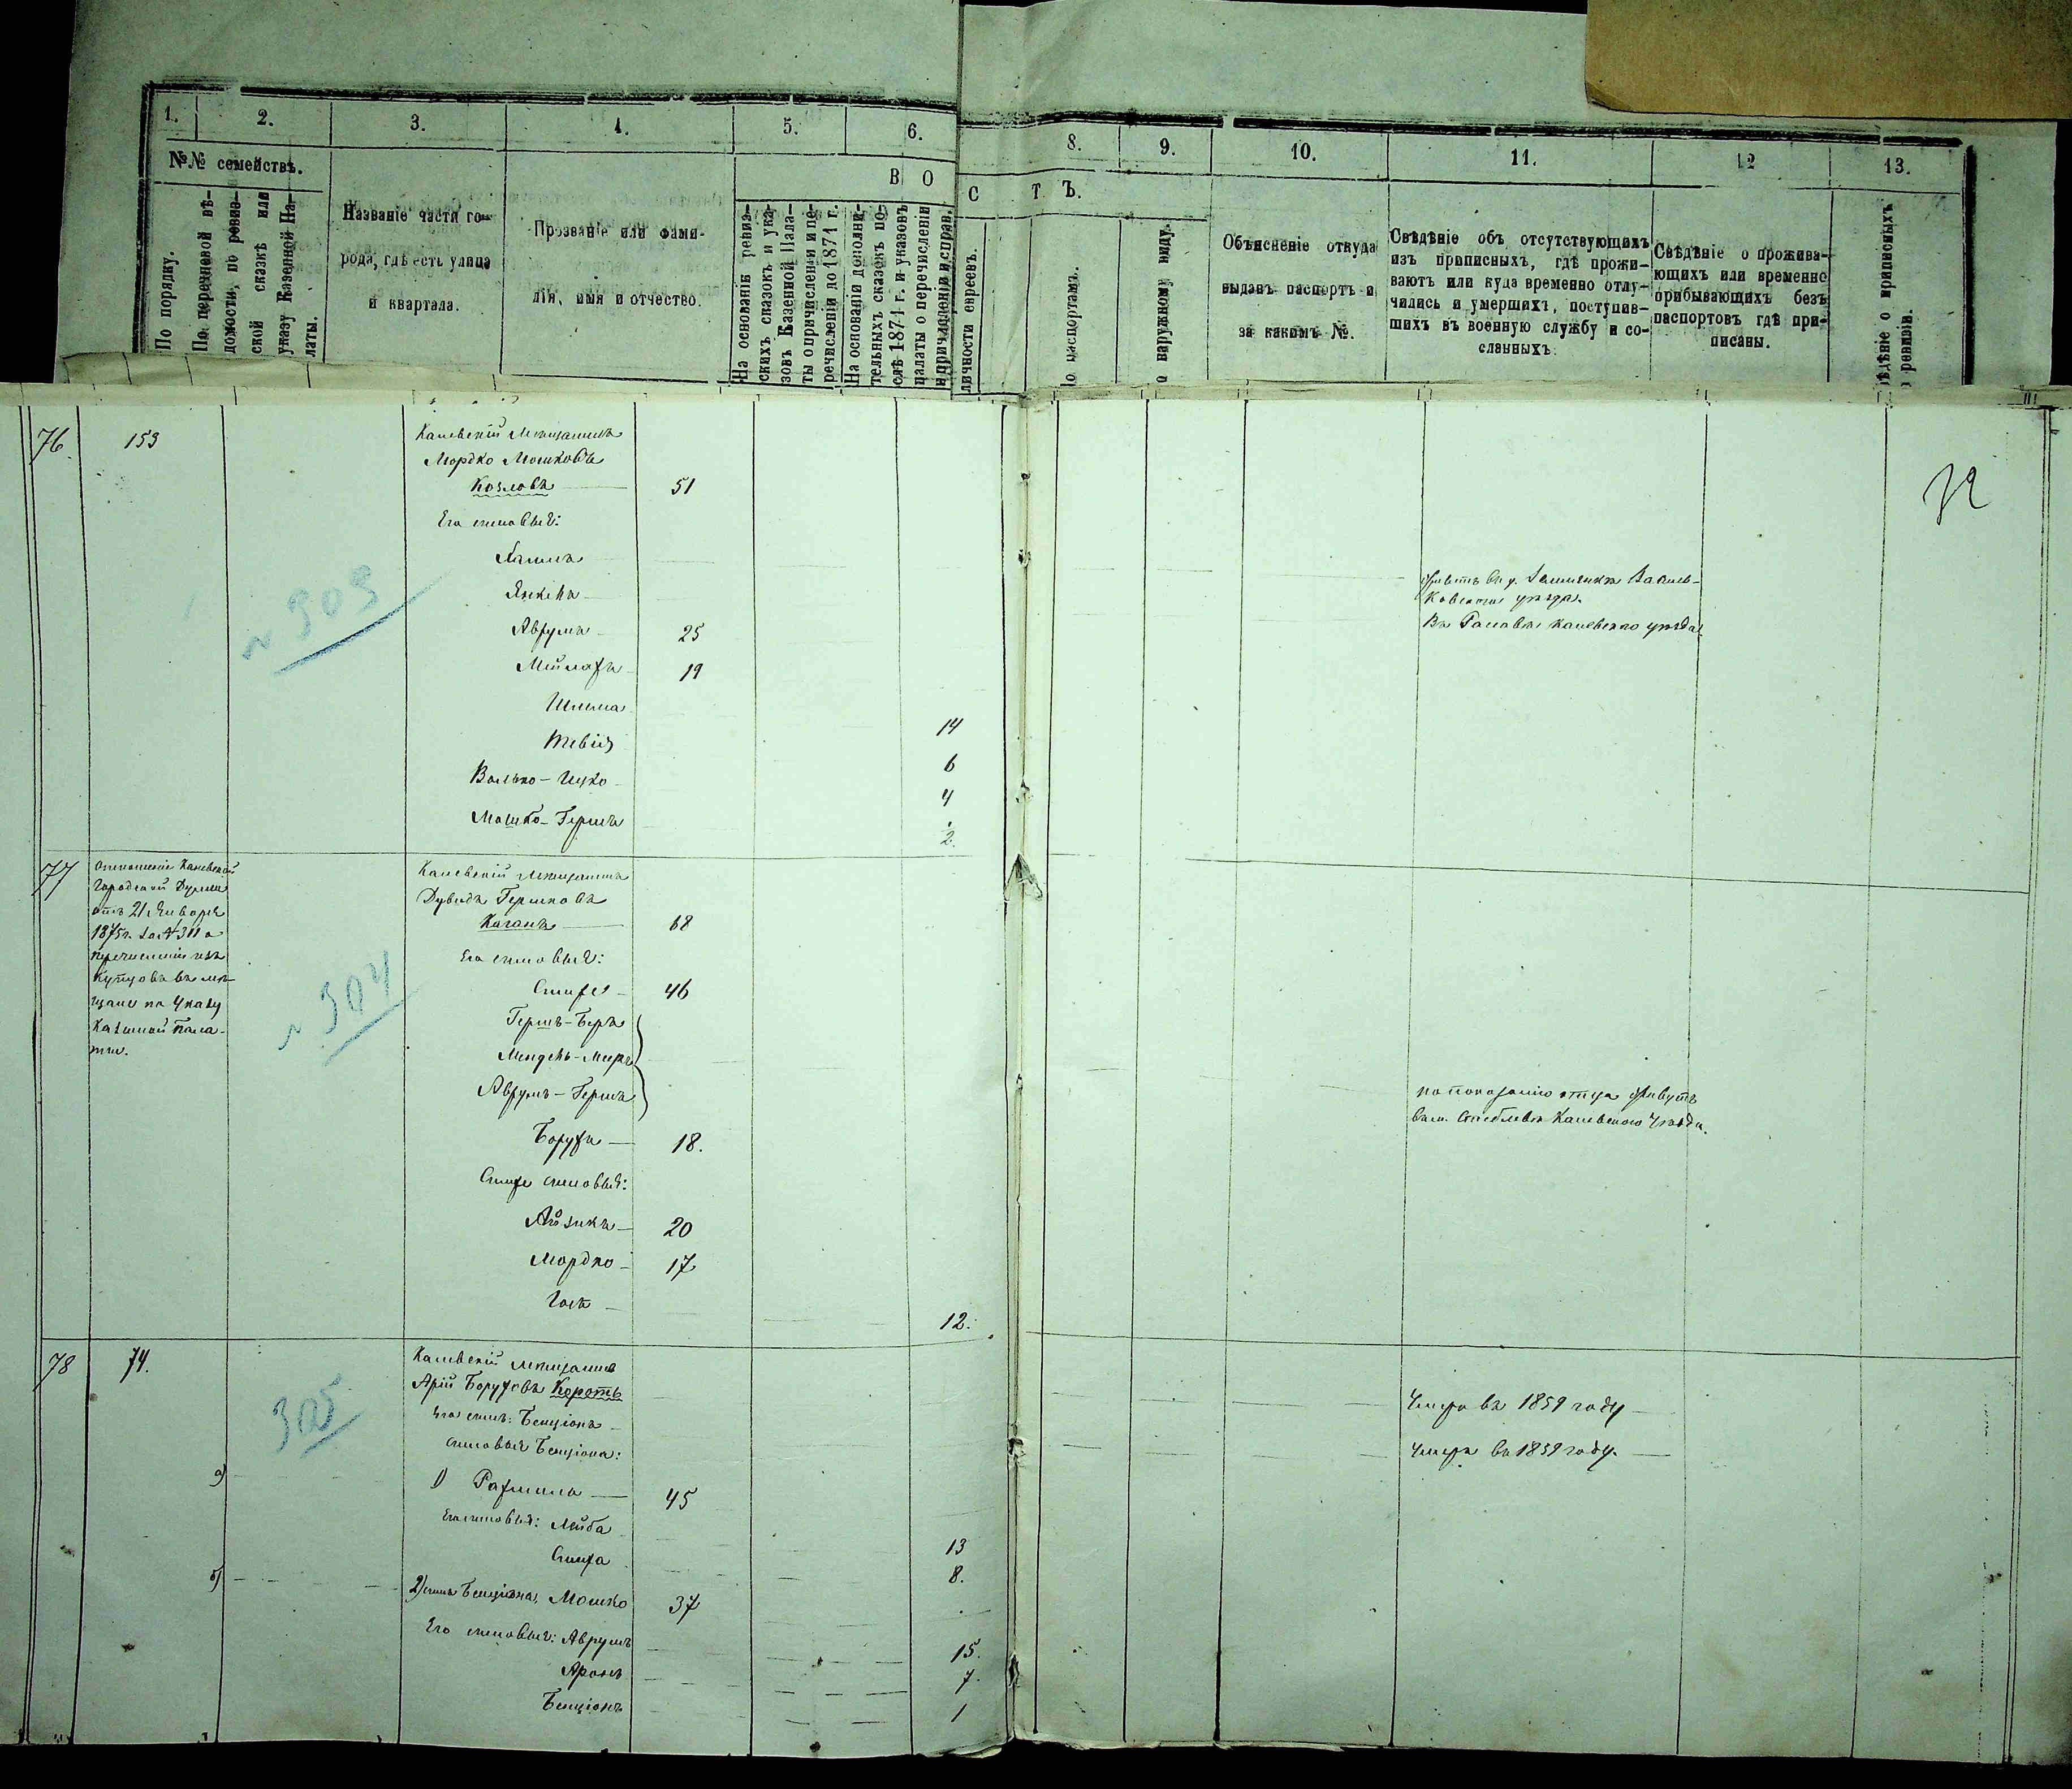 1. 2. 3. 4. 5. 6. 8. 9. 10. 11. 12 13.
№№ семействъ.
В О С Т Ъ.
По порядку.
По перечневой вѣ-
домости, по ревиз-
ской сказкѣ или
указу Казенной Па-
латы.
Названіе части го-
рода, гдѣ есть улица
и квартала.
Прозваніе или фами-
лія, имя и отчество.
На основаніи ревиз-
скихъ сказокъ и ука-
зовъ Казенной Пала-
ты о причисленіи и пе-
речисленіи до 1874 г.
На основаніи дополни-
тельныхъ сказокъ по-
слѣ 1874 г. и указовъ
палаты о перечисленіи
и причисленіи и справ.
личности евреевъ.
о паспортамъ.
о наружному виду.
Объясненіе откуда
выданъ паспортъ и
за какимъ №.
Свѣдѣніе объ отсутствующихъ
изъ приписныхъ, гдѣ прожи-
ваютъ или куда временно отлу-
чились и умершихъ, поступив-
шихъ въ военную службу и со-
сланныхъ.
Свѣдѣніе о прожива-
ющихъ или временно
прибывающихъ безъ
паспортовъ гдѣ при-
писаны.
ѣдѣніе о приписныхъ
ревизіи.
76. 153
Каневскій Мѣщанинъ
Мордко Мошковъ
Козловъ 51
Его сыновья:
Янкель
Аврумъ 25
Въ Каневскаго уѣзда
Мейлахъ 19
Шлема 14
Тевій 6
Волько-Ицко 4
Мошко-Гершъ 2.
№ 303
77
Отношеніе Каневской
Городской Думы
отъ 21 Января
1875 г. за № 311 о
перечисленіи изъ
купцовъ въ мѣ-
щане по Указу
Казенной Пала-
ты.
№ 304
Каневскій Мѣщанинъ
Дувидъ Гершковъ
Каганъ 68
Его сыновья:
Симха 46
Гершъ-Беръ
Мендель-Меиръ
Аврумъ-Гершъ
по показанію отца живутъ
въ м. Стеблевѣ Каневскаго Уѣзда.
Борухъ 18.
Симхи сыновья:
Айзикъ 20
Мордко 17
12.
78 74.
305
Каневскій мѣщанинъ
Арій Боруховъ Коротъ Умеръ въ 1859 году
Его сынъ: Бенціонъ Умеръ въ 1859 году.
Сыновья Бенціона:
а) 1) Рахмилъ 45
Его сыновья: Лейба 13
Симха 8.
б) 2) сынъ Бенціона, Мошко 37
Его сыновья: Аврумъ 15.
Аронъ 7.
Бенціонъ 1